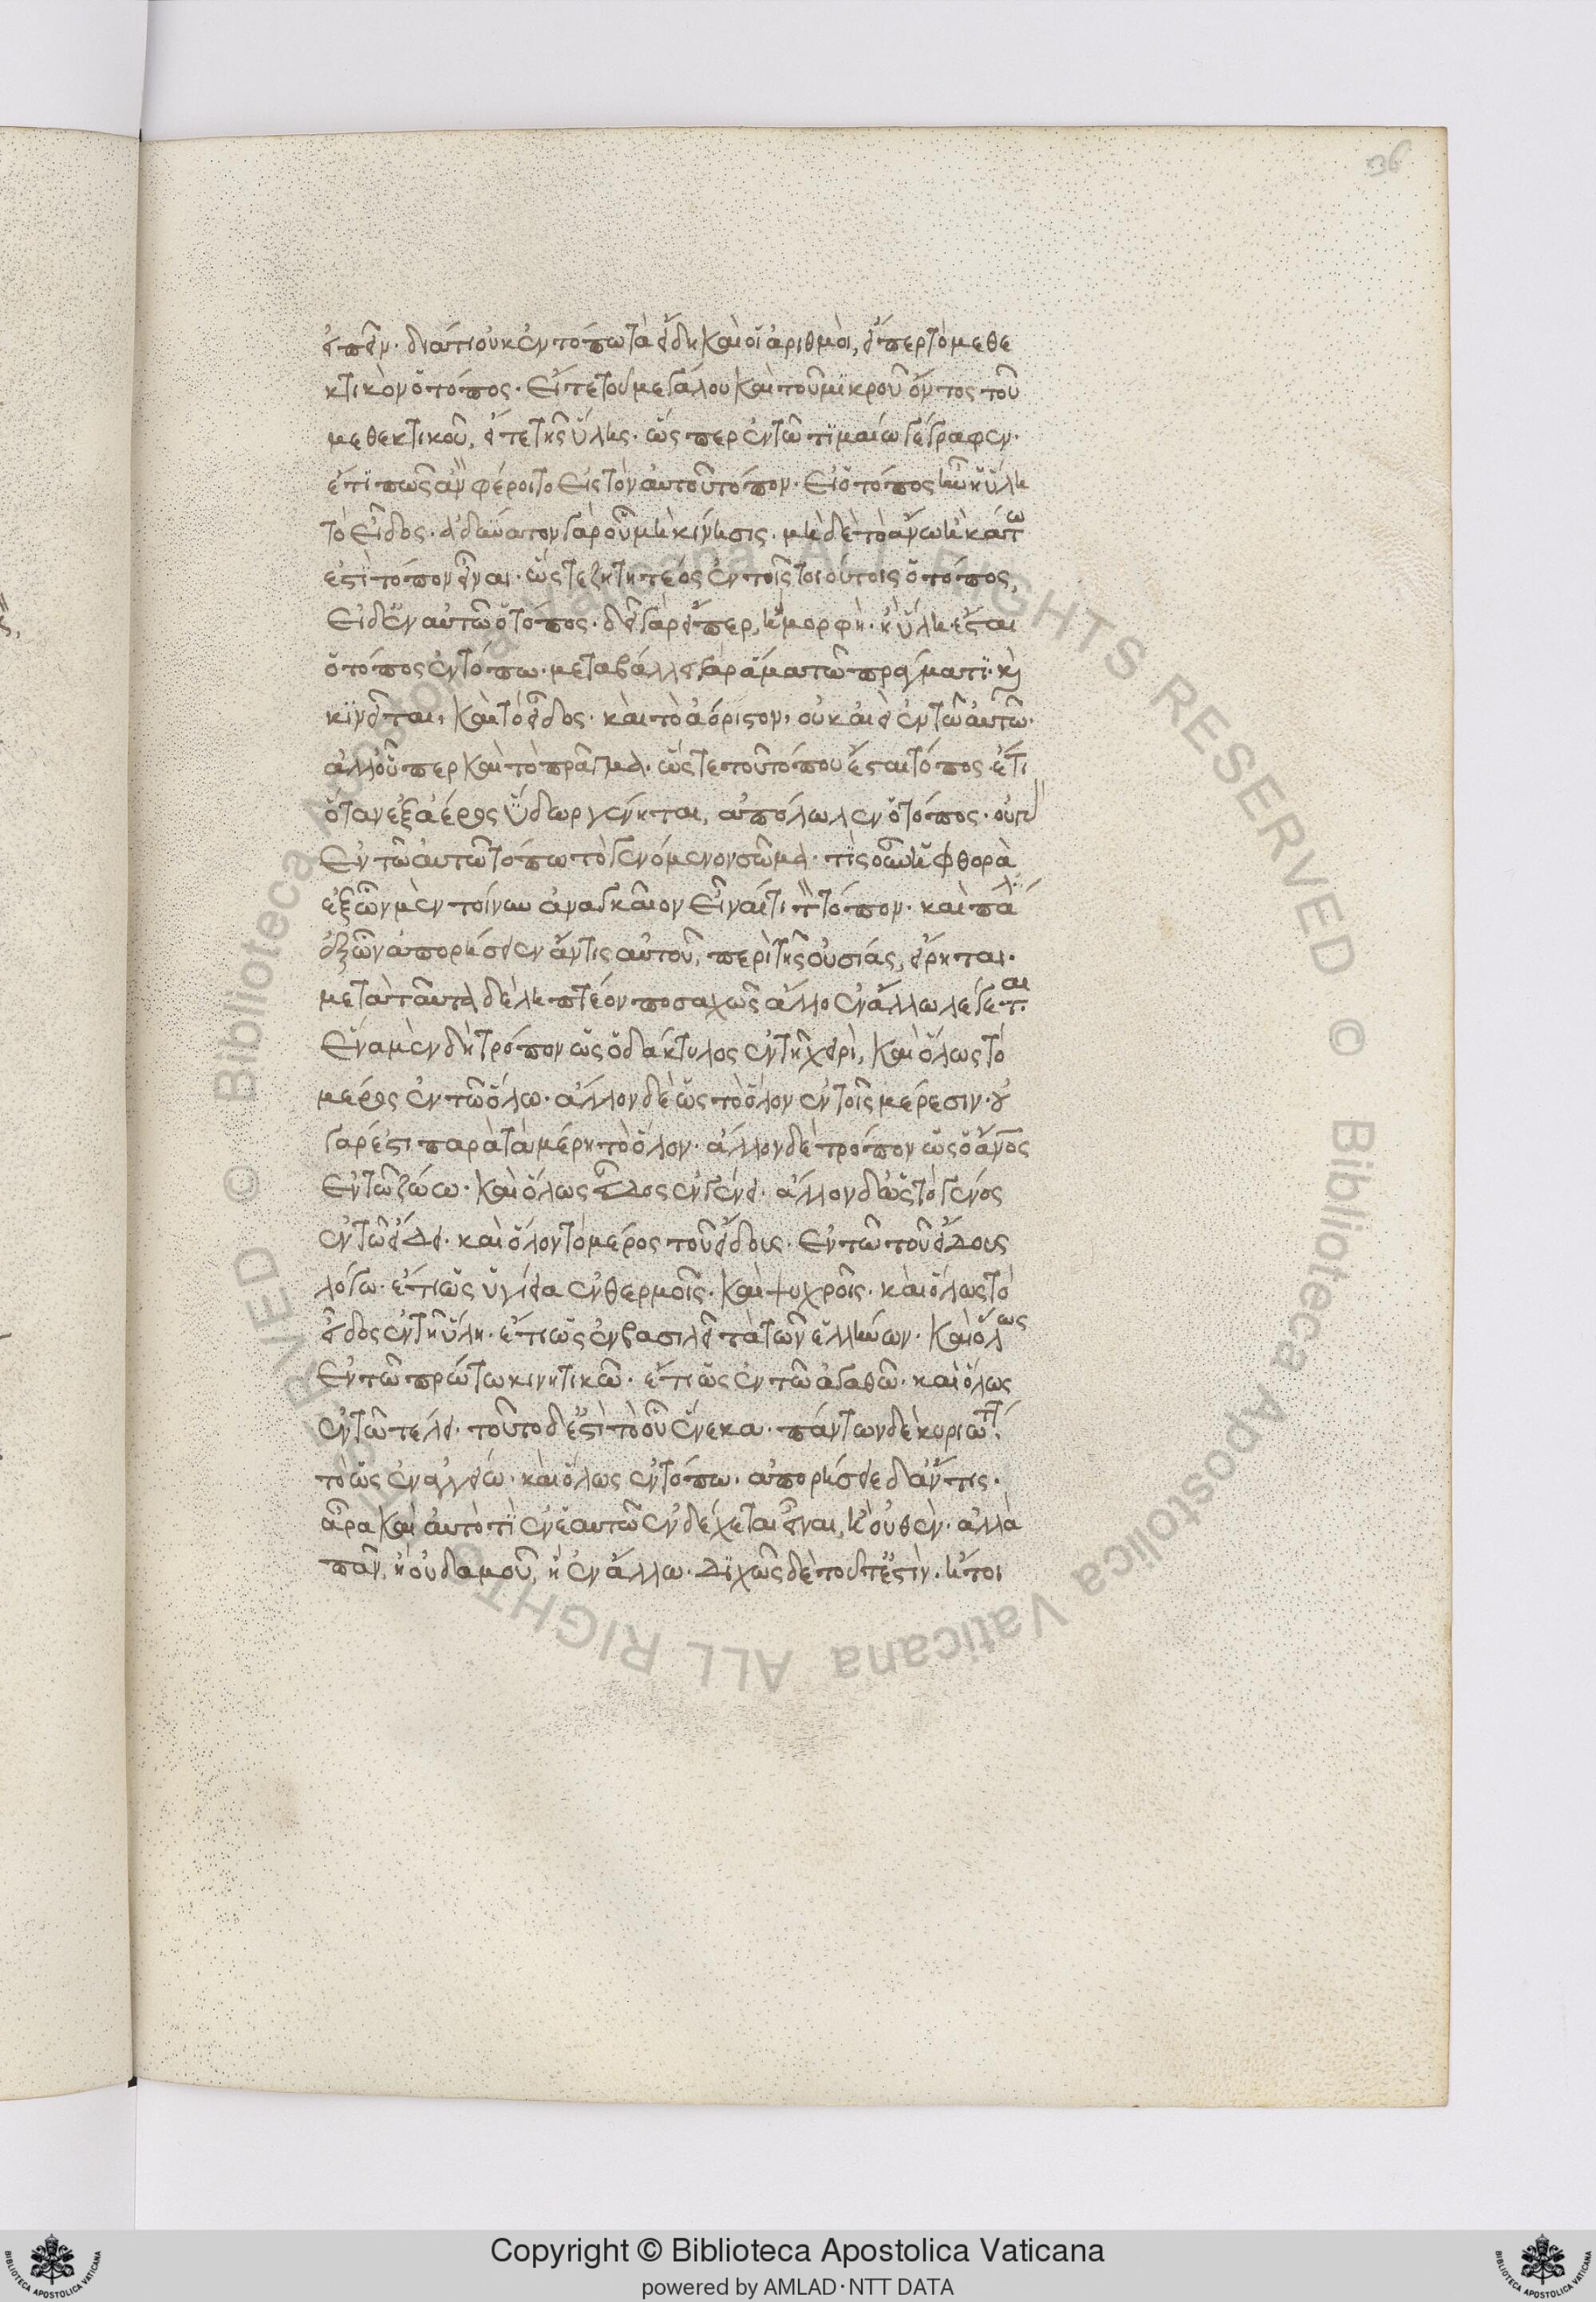 36
εἰπεῖν· διατί οὐκ ἐν τόπω τὰ εἴδη καὶ οἱ ἀριθμὸι, εἴπερ τὸ μεθε
κτικὸν ὁ τόπος· Εἴτε τοῦ μεγάλου καὶ τοῦ μϊκροῦ ὄντος τοῦ
μεθεκτικοῦ, εἴτε τῆς ὕλης· ὥσπερ ἐν τῶ τϊμαίω γέγραφεν·
ἔτϊ πῶς ἂν φέροιτο εἰς τὸν αὐτοῦ τόπον· Εἰ ὁ τόπος ἡ ὕλη ἢ
τὸ εἶδος· ἀδύνατον γὰρ οὗ μὴ κίνησις· μηδὲ τὸ ἄνω ἢ κάτω
ἐστὶ τόπον εἶναι· ὥστε ζητητέος ἐν τοῖς τοιούτοις ὁ τόπος,
Εἰ δ' ἐν αὐτῶ ὁ τόπος· δεῖ γὰρ εἴπερ, ἢ μορφὴ· ἢ ὕλη· ἔσται
ὁ τόπος ἐν τόπω· μεταβάλλει γὰρ ἅμα τῶ πράγματϊ· καὶ
κϊνεῖται, καὶ τὸ εἶδος· καὶ τὸ ἀόριστον, οὐκ ἀεὶ ἐν τῶ αὐτῶ·
ἀλλ' οὗπερ καὶ τὸ πρᾶγμα· ὥστε τοῦ τόπου ἔσται τόπος· ἔτι
ὅταν ἐξ ἀέρος ὕδωρ γένηται, ἀπόλωλεν ὁ τόπος· οὐ γὰρ
Ἐν τῶ αὐτῶ τόπω τὸ γενόμενον σῶμα· τίς οὖν ἡ φθορὰ
ἐξ ὧν μὲν τοίνυν ἀναγκαῖον εἶναί τι τὸν τόπον· καὶ πάλιν
ἐξ ὧν ἀπορήσειεν ἄν τις αὐτοῦ, περὶ τῆς οὐσίας, εἴρηται·
μετὰ ταῦτα δὲ ληπτέον ποσαχῶς ἄλλο ἐν ἄλλω λέγεται·
Ἕνα μὲν δὴ τρόπον ὡς ὁ δάκτυλος ἐν τῆ χειρὶ, καὶ ὅλως τὸ
μέρος ἐν τῶ ὅλω· ἄλλον δὲ ὡς τὸ ὅλον ἐν τοῖς μέρεσιν· οὐ
γάρ ἐστι παρὰ τὰ μέρη τὸ ὅλον· ἄλλον δὲ τρόπον ὡς ὁ ἄνος
Ἐν τῶ ζώω· καὶ ὅλως εἶδος ἐν γένει· ἄλλον δ' ὡς τὸ γένος
ἐν τῶ εἴδει· καὶ ὅλον τὸ μέρος τοῦ εἴδους· Ἐν τῶ τοῦ εἴδους
λόγω· ἔτι ὡς ὑγίεια ἐν θερμοῖς· καὶ ψυχροῖς· καὶ ὅλως τὸ
εἶδος ἐν τῆ ὕλη· ἔτι ὡς ἐν βασιλεῖ τὰ τῶν ἑλλήνων· καὶ ὅλως
Ἐν τῶ πρώτω κινητικῶ· ἔτι ὡς ἐν τῶ ἀγαθῶ· καὶ ὅλως
ἐν τῶ τέλει· τοῦτο δ' ἐστὶ τὸ οὗ ἕνεκα· πάντων δὲ κυριώτ.
τὸ ὡς ἐν ἀγγείω· καὶ ὅλως ἐν τόπω· ἀπορήσειε δ' ἄν τις·
ἆρα καὶ αὐτό τϊ ἐν ἑαυτῶ ἐνδέχεται εἶναι, ἢ οὐθὲν· ἀλλὰ
πᾶν, ἢ οὐδαμοῦ, ἢ ἐν ἄλλω· Διχῶς δὲ τοῦτ' ἐστὶν· ἤτοι
Copyright © Biblioteca Apostolica Vaticana
powered by AMLAD·NTT DATA